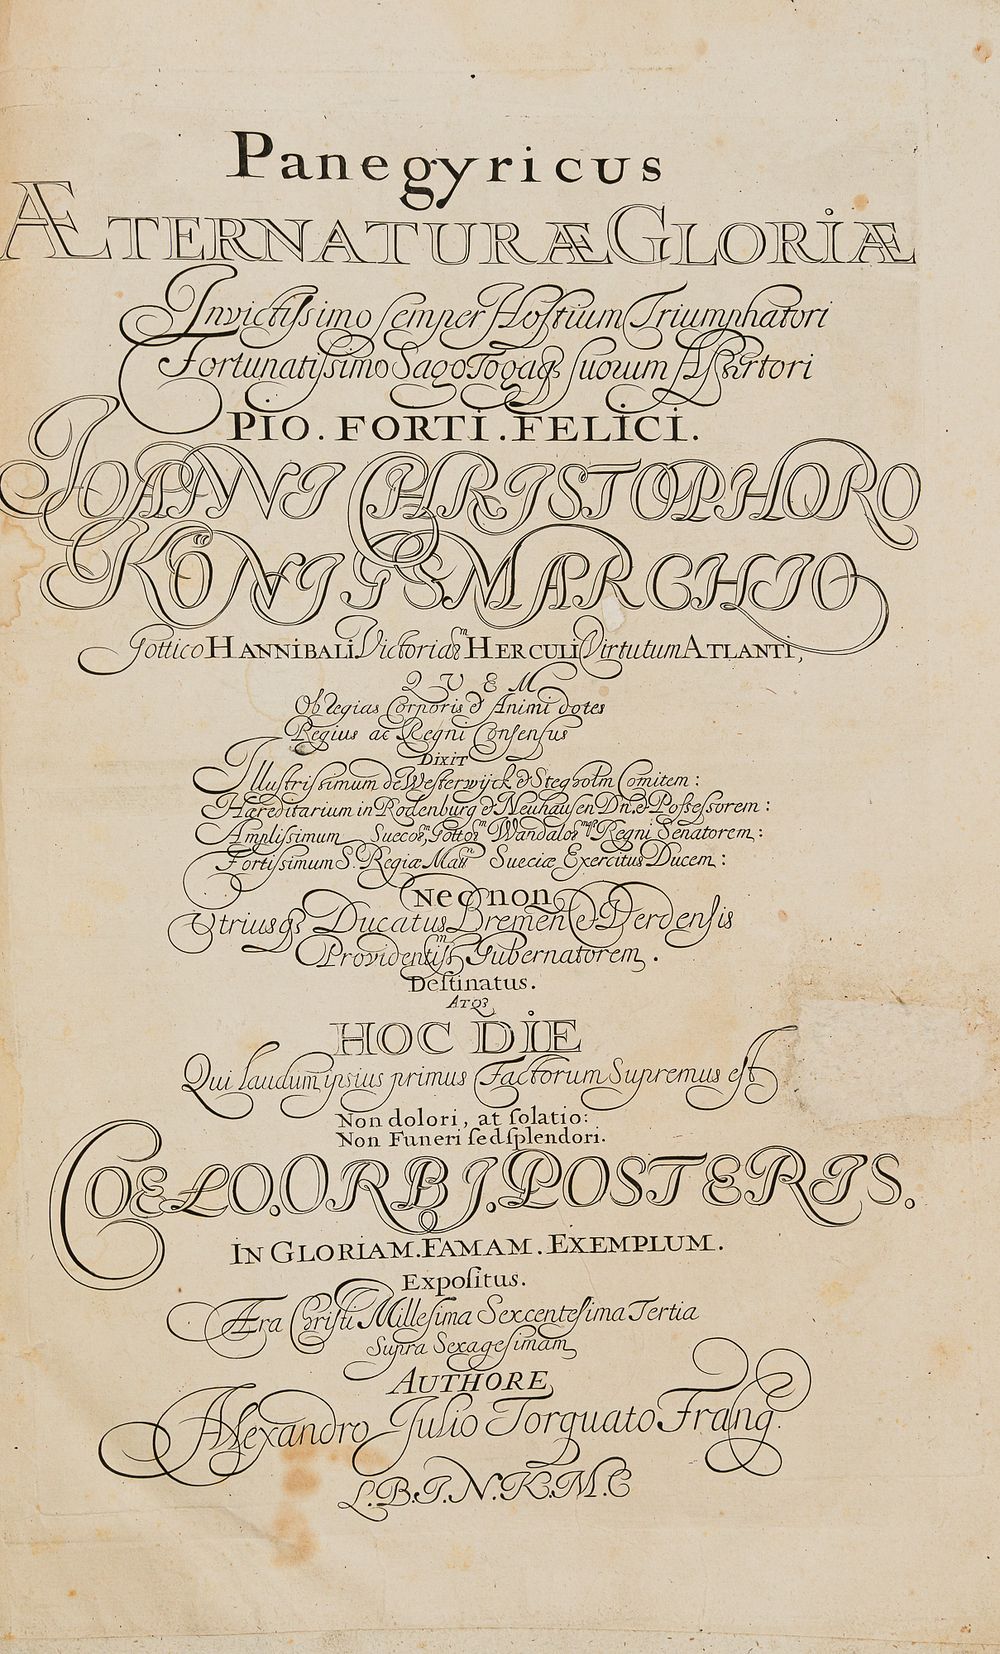 Panegyricus
ÆTERNATURÆ GLORIÆ
Invictiſsimo ſemper Hoſtium Triumphatori
Fortunatiſsimo Sago Togaqꝫ ſuorum Aſsertori
PIO. FORTI. FELICI.
IOANNI CHRISTOPHORO
KÖNIGSMARCHIO
Gottico HANNIBALI Victoriaꝝᵐ HERCULI Virtutum ATLANTI,
QVEM
Ob regias Corporis & Animi dotes
Regius ac Regni Conſenſus
DIXIT
Illuſtriſsimum de Weſterwijck & Stegholm Comitem:
Hæreditarium in Rodenburg & Neuhauſen Dn. & Poſseſsorem:
Ampliſsimum Suecoꝝᵐ, Gottoꝝᵐ Wandaloꝝᵐqꝫ Regni Senatorem:
Fortiſsimum S. Regiæ Maᵗⁱˢ Sueciæ Exercitus Ducem:
Nec non
Utriusqꝫ Ducatus Bremen & Verdenſis
Providentiſsᵐ Gubernatorem.
Deſtinatus.
ATQꝫ
HOC DIE
Qui laudum ipsius primus Factorum Supremus eſt
Non dolori, at ſolatio:
Non Funeri ſed ſplendori.
COELO. ORBI. POSTERIS.
IN GLORIAM. FAMAM. EXEMPLUM.
Expoſitus.
Æra Chriſti Milleſima Sexcenteſima Tertia
Supra Sexageſimam
AUTHORE
Alexandro Julio Torquato Frang.
L.B.I.N.K.M.C